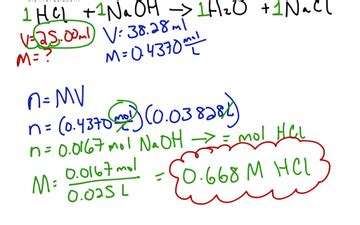 1 HCl + 1 NaOH → 1 H₂O + 1 NaCl
V=25.00ml V: 38.28ml
M=? M: 0.4370 mol/L
n=MV
n=(0.4370 mol/L)(0.03828L)
n=0.0167 mol NaOH → = mol HCl
M= 0.0167mol / 0.025 L = 0.668 M HCl